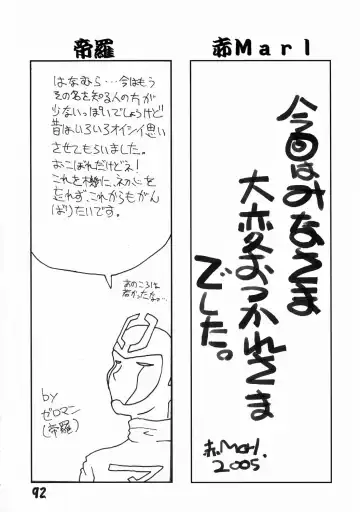 赤Marl
今回はみなさま
大変おつかれさま
でした。
赤Marl.
2005.
帝羅
はなむら…今はもう
その名を知る人の方が
少ないっぽいでしょうけど
昔はいろいろオイシイ思い
させてもらいました。
おこぼれだけどネ!
これを機に、初心を
忘れず、これからもがん
ばりたいです。
あのころは
若かったな…
by
ゼロマン
(帝羅)
92